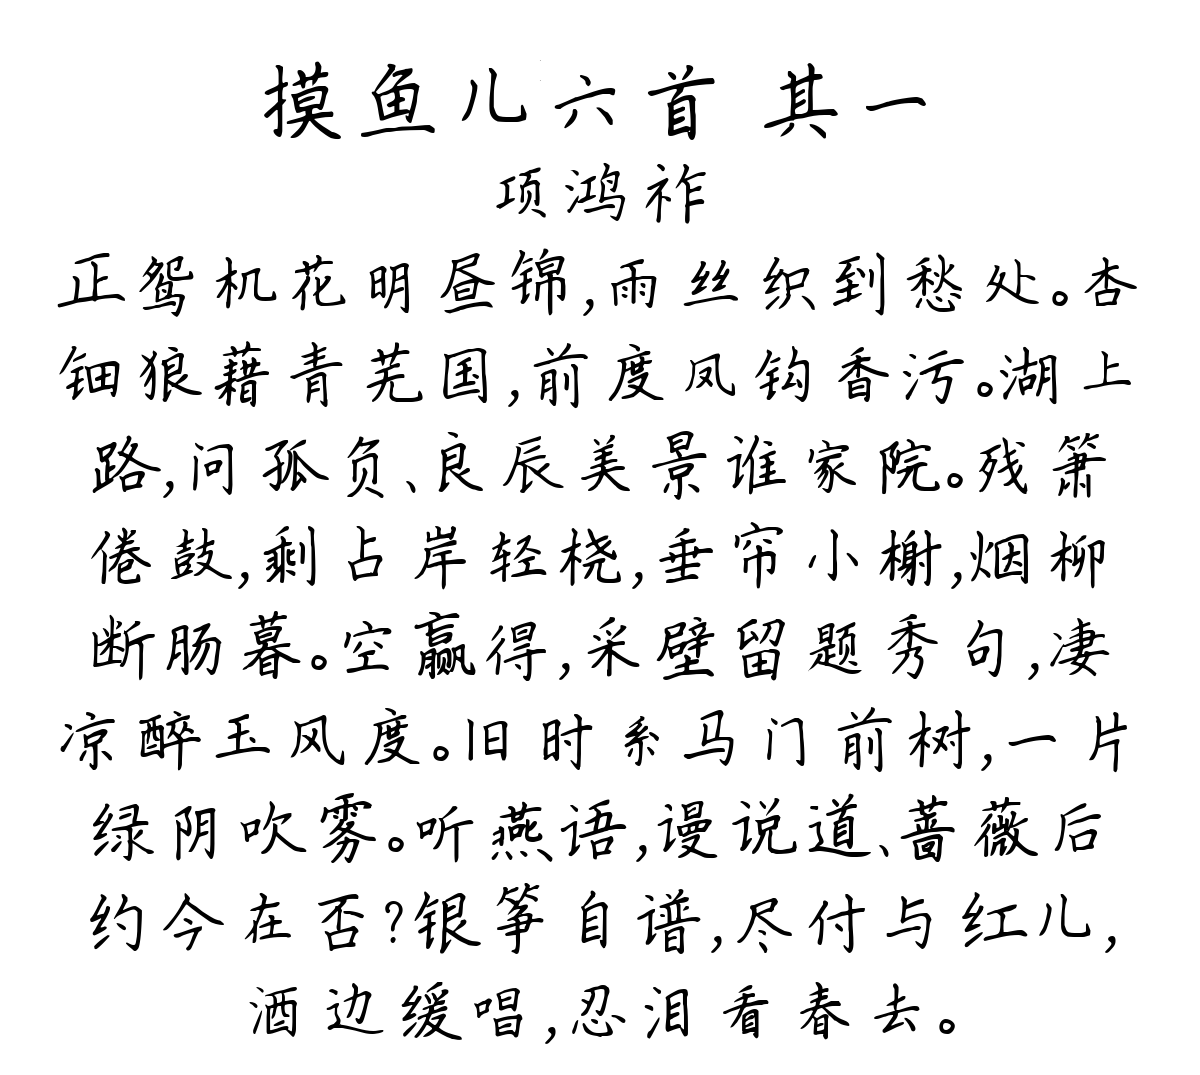 摸鱼儿六首 其一
项鸿祚
正鸳机花明昼锦,雨丝织到愁处。杏
钿狼藉青芜国,前度凤钩香污。湖上
路,问孤负、良辰美景谁家院。残箫
倦鼓,剩占岸轻桡,垂帘小榭,烟柳
断肠暮。空赢得,采壁留题秀句,凄
凉醉玉风度。旧时系马门前树,一片
绿阴吹雾。听燕语,谩说道、蔷薇后
约今在否?银筝自谱,尽付与红儿,
酒边缓唱,忍泪看春去。